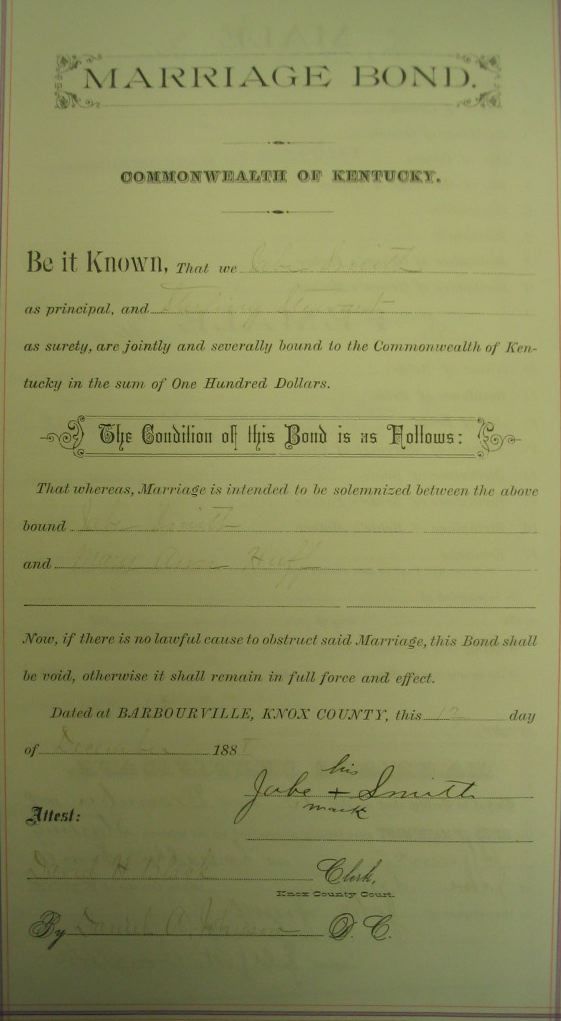 MARRIAGE BOND.
COMMONWEALTH OF KENTUCKY.
Be it Known, That we Smith
as principal, and Sterling Stewart
as surety, are jointly and severally bound to the Commonwealth of Ken-
tucky in the sum of One Hundred Dollars.
The Condition of this Bond is as Follows:
That whereas, Marriage is intended to be solemnized between the above
bound Smith
and Mary Ann Huff
Now, if there is no lawful cause to obstruct said Marriage, this Bond shall
be void, otherwise it shall remain in full force and effect.
Dated at BARBOURVILLE, KNOX COUNTY, this 12 day
of December 188
his
Jabe + Smith
mark
Attest:
Clerk,
Knox County Court.
By Daniel D. C.